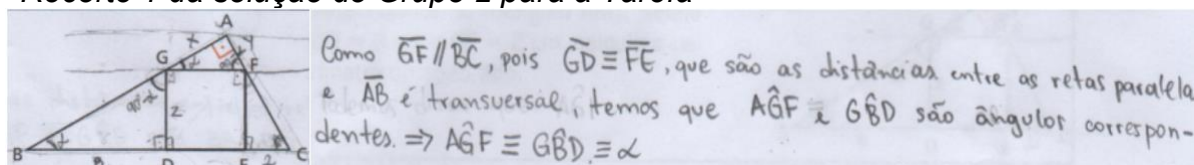 Recorte 1 da solução do Grupo 2 para a Tarefa
A
x
y
G
F
B
D
E
C
2
8
2
Como GF // BC, pois GD ≡ FE, que são as distâncias entre as retas paralela
e AB é transversal, temos que AĜF e GB̂D são ângulos correspon-
dentes. ⇒ AĜF ≡ GB̂D ≡ α